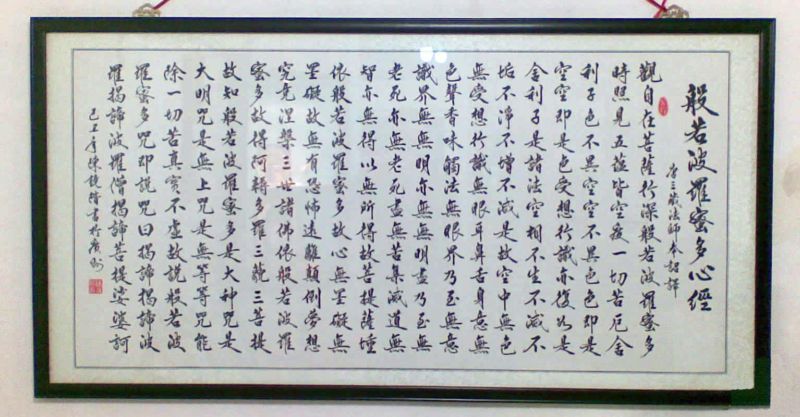 般若波羅蜜多心經
唐三藏法師奉詔譯
觀自在菩薩行深般若波羅蜜多
時照見五蘊皆空度一切苦厄舍
利子色不異空空不異色色即是
空空即是色受想行識亦復如是
舍利子是諸法空相不生不滅不
垢不淨不增不減是故空中無色
無受想行識無眼耳鼻舌身意無
色聲香味觸法無眼界乃至無意
識界無無明亦無無明盡乃至無
老死亦無老死盡無苦集滅道無
智亦無得以無所得故菩提薩埵
依般若波羅蜜多故心無罣礙無
罣礙故無有恐怖遠離顛倒夢想
究竟涅槃三世諸佛依般若波羅
蜜多故得阿耨多羅三藐三菩提
故知般若波羅蜜多是大神咒是
大明咒是無上咒是無等等咒能
除一切苦真實不虛故說般若波
羅蜜多咒即說咒曰揭諦揭諦波
羅揭諦波羅僧揭諦菩提娑婆訶
己丑年陳鏡書於廣州